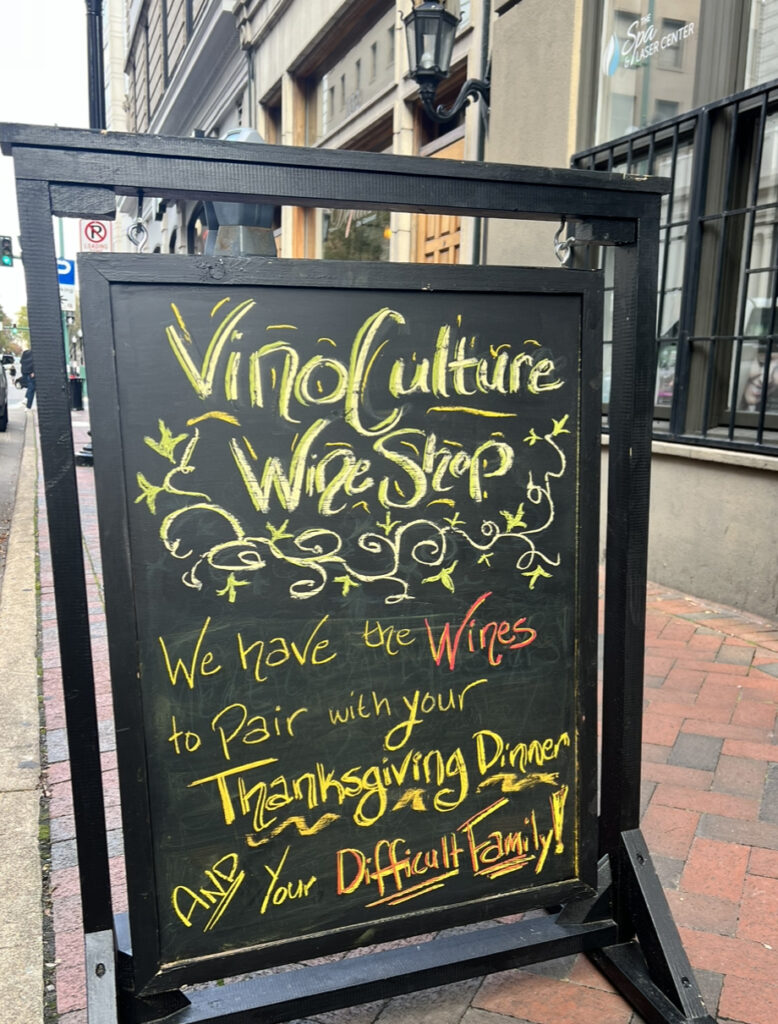 THE
Spa
& LASER CENTER
VinoCulture
Wine Shop
We have the Wines
to Pair with your
Thanksgiving Dinner
AND Your Difficult Family!